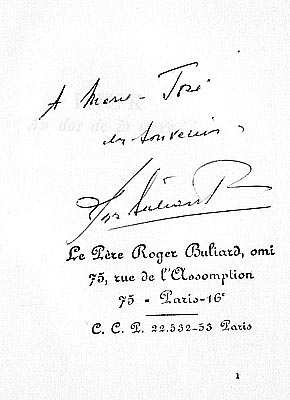 A Marie-José
en souvenir,
Le Père Roger Buliard, omi
75, rue de l'Assomption
75 - Paris-16e
C. C. P. 22.532-53 Paris
1